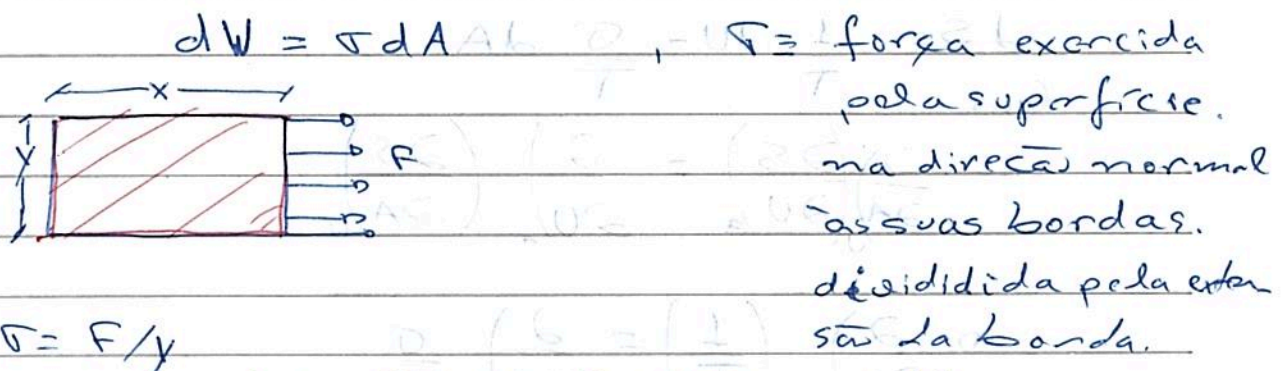 dW = σ dA , σ ≡ força exercida
pela superfície.
x
y
F
na direção normal
às suas bordas.
divididida pela exten-
são da borda.
σ = F/y